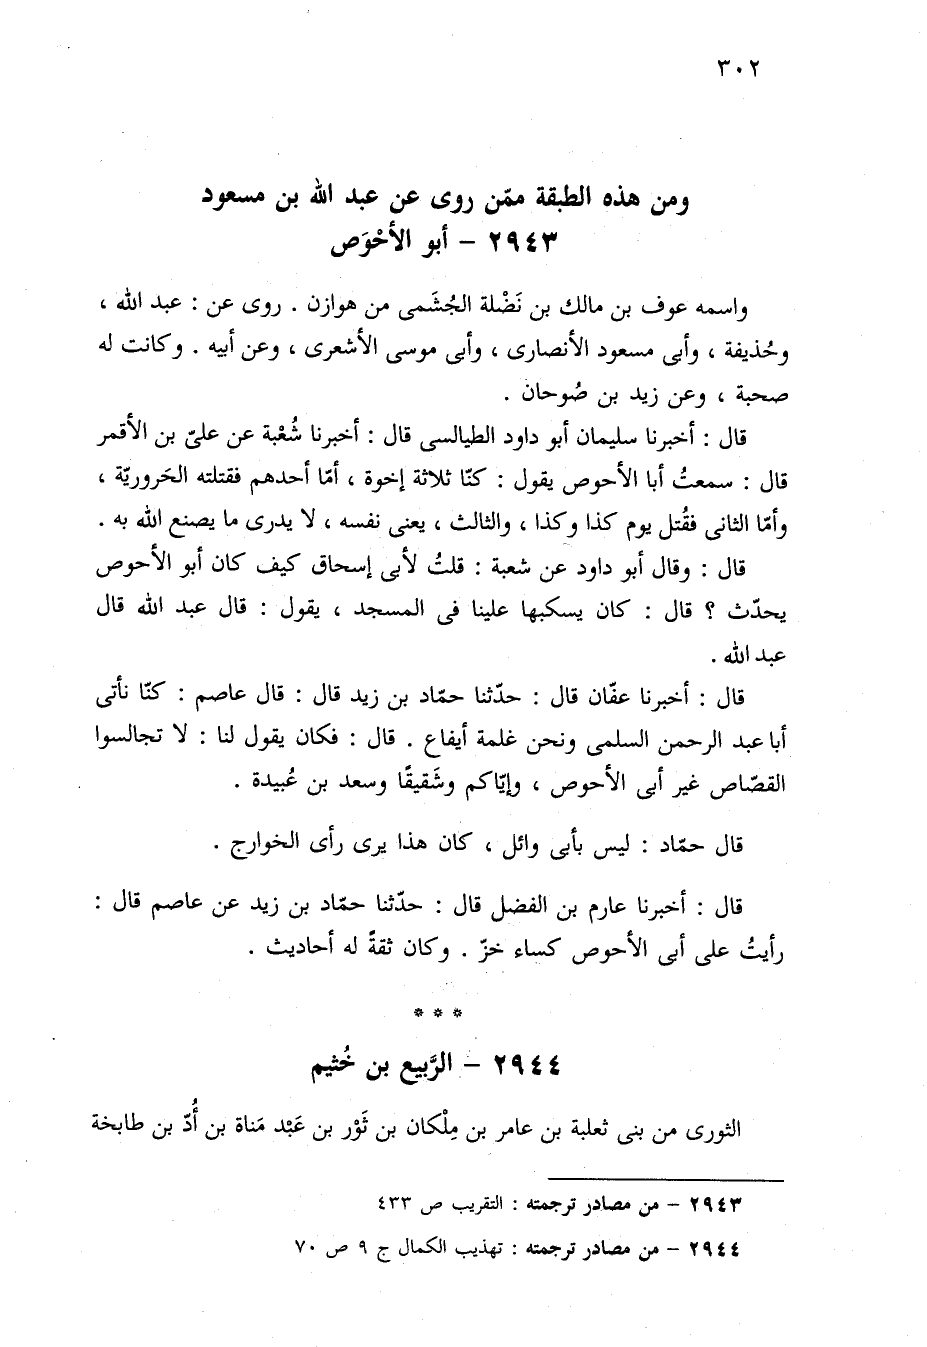 ٣٠٢
ومن هذه الطبقة ممّن روى عن عبد الله بن مسعود
٢٩٤٣ – أبو الأحْوَص
واسمه عوف بن مالك بن نَضْلة الجُشَمى من هوازن . روى عن : عبد الله ،
وحُذيفة ، وأبى مسعود الأنصارى ، وأبى موسى الأشعرى ، وعن أبيه . وكانت له
صحبة ، وعن زيد بن صُوحان .
قال : أخبرنا سليمان أبو داود الطيالسى قال : أخبرنا شُعْبة عن علىّ بن الأقمر
قال : سمعتُ أبا الأحوص يقول : كنّا ثلاثة إخوة ، أمّا أحدهم فقتلته الحَروريّة ،
وأمّا الثانى فقُتل يوم كذا وكذا ، والثالث ، يعنى نفسه ، لا يدرى ما يصنع الله به .
قال : وقال أبو داود عن شعبة : قلتُ لأبى إسحاق كيف كان أبو الأحوص
يحدّث ؟ قال : كان يسكبها علينا فى المسجد ، يقول : قال عبد الله قال
عبد الله .
قال : أخبرنا عفّان قال : حدّثنا حمّاد بن زيد قال : قال عاصم : كنّا نأتى
أبا عبد الرحمن السلمى ونحن غلمة أيفاع . قال : فكان يقول لنا : لا تجالسوا
القصّاص غير أبى الأحوص ، وإيّاكم وشَقيقًا وسعد بن عُبيدة .
قال حمّاد : ليس بأبى وائل ، كان هذا يرى رأى الخوارج .
قال : أخبرنا عارم بن الفضل قال : حدّثنا حمّاد بن زيد عن عاصم قال :
رأيتُ على أبى الأحوص كساء خزّ . وكان ثقةً له أحاديث .
* * *
٢٩٤٤ – الرَّبيع بن خُثيم
الثورى من بنى ثعلبة بن عامر بن مِلْكان بن ثَوْر بن عَبْد مَناة بن أُدّ بن طابخة
٢٩٤٣ – من مصادر ترجمته : التقريب ص ٤٣٣
٢٩٤٤ – من مصادر ترجمته : تهذيب الكمال ج ٩ ص ٧٠